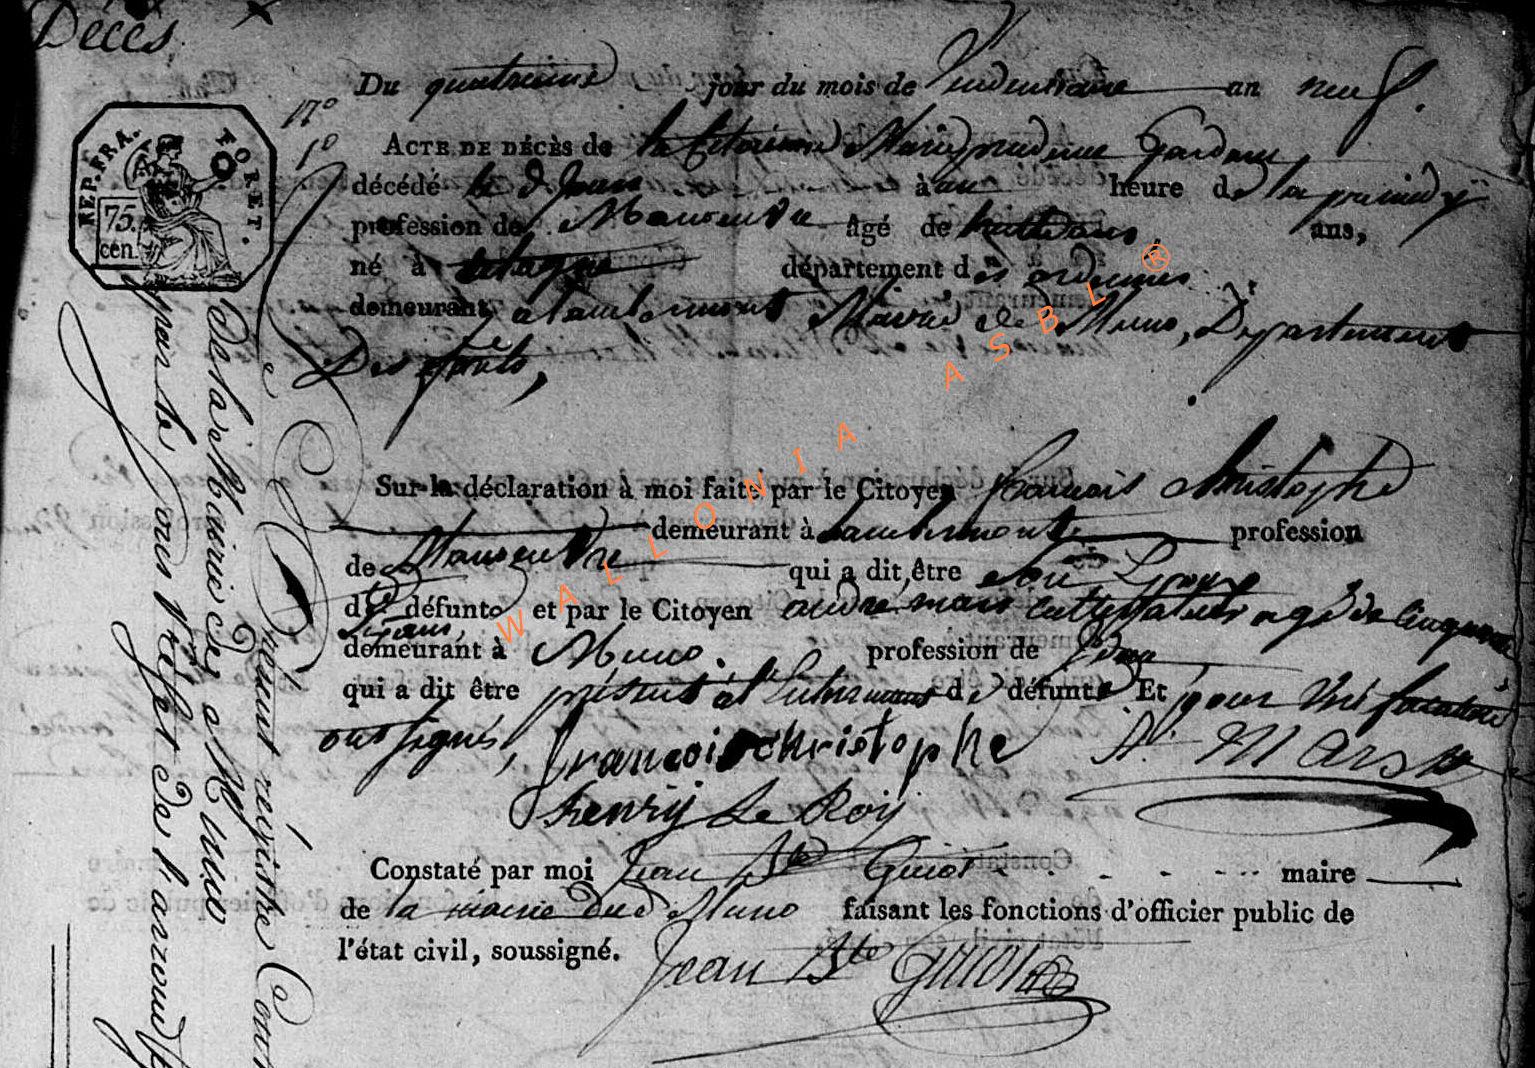 Décès
Du quatrieme jour du mois de Vendemiaire an neuf.
17º
1º
REP. FRA.
TORET.
75.
cen.
ACTE DE DÉCÈS de la Citoienne Marie
décédé le d à une heure de
profession de Manoeuvre âgé de huit ans, ans,
né à département des ardennes
demeurant a Lambermont Mairie de Muno, Département
Des forêts,
Sur la déclaration à moi faite par le Citoyen francois christophe
demeurant à Lambermont profession
de Manoeuvre qui a dit être son
de défunte et par le Citoyen andré mars agé de cinquante
demeurant à Muno. profession de
qui a dit être présent à de défunte Et pour
ont signés, francois christophe A. Mars
henry Le Roy
Constaté par moi Jean Bte Guiot maire
de la mairie de Muno faisant les fonctions d'officier public de
l'état civil, soussigné.
Jean Bte Guiot
présent régistre
de la Mairie de Muno
par le Sous Préfet de l'arrond
WALLONIA ASBL ®